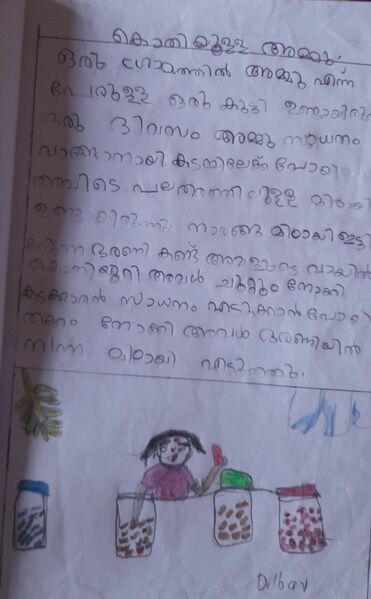 കൊതിയുള്ള അമ്മു.
ഒരു ഗ്രാമത്തിൽ അമ്മു എന്ന്
പേരുള്ള ഒരു കുട്ടി ഉണ്ടായിരു
ഒരു ദിവസം അമ്മു സാധനം
വാങ്ങാനായി കടയിലേക്ക് പോയി
അവിടെ പലതരത്തിലുള്ള മിഠായി
ഉണ്ടായിരുന്നു. നാരങ്ങ മിഠായി ഇട്ടി
രുന്ന ഭരണി കണ്ട് അവളുടെ വായിൽ
കൊതിയൂറി അവൾ ചുറ്റും നോക്കി
കടക്കാരൻ സാധനം എടുക്കാൻ പോയ
തക്കം നോക്കി അവൾ ഭരണിയിൽ
നിന്ന് മിഠായി എടുത്തു.
Dilbav